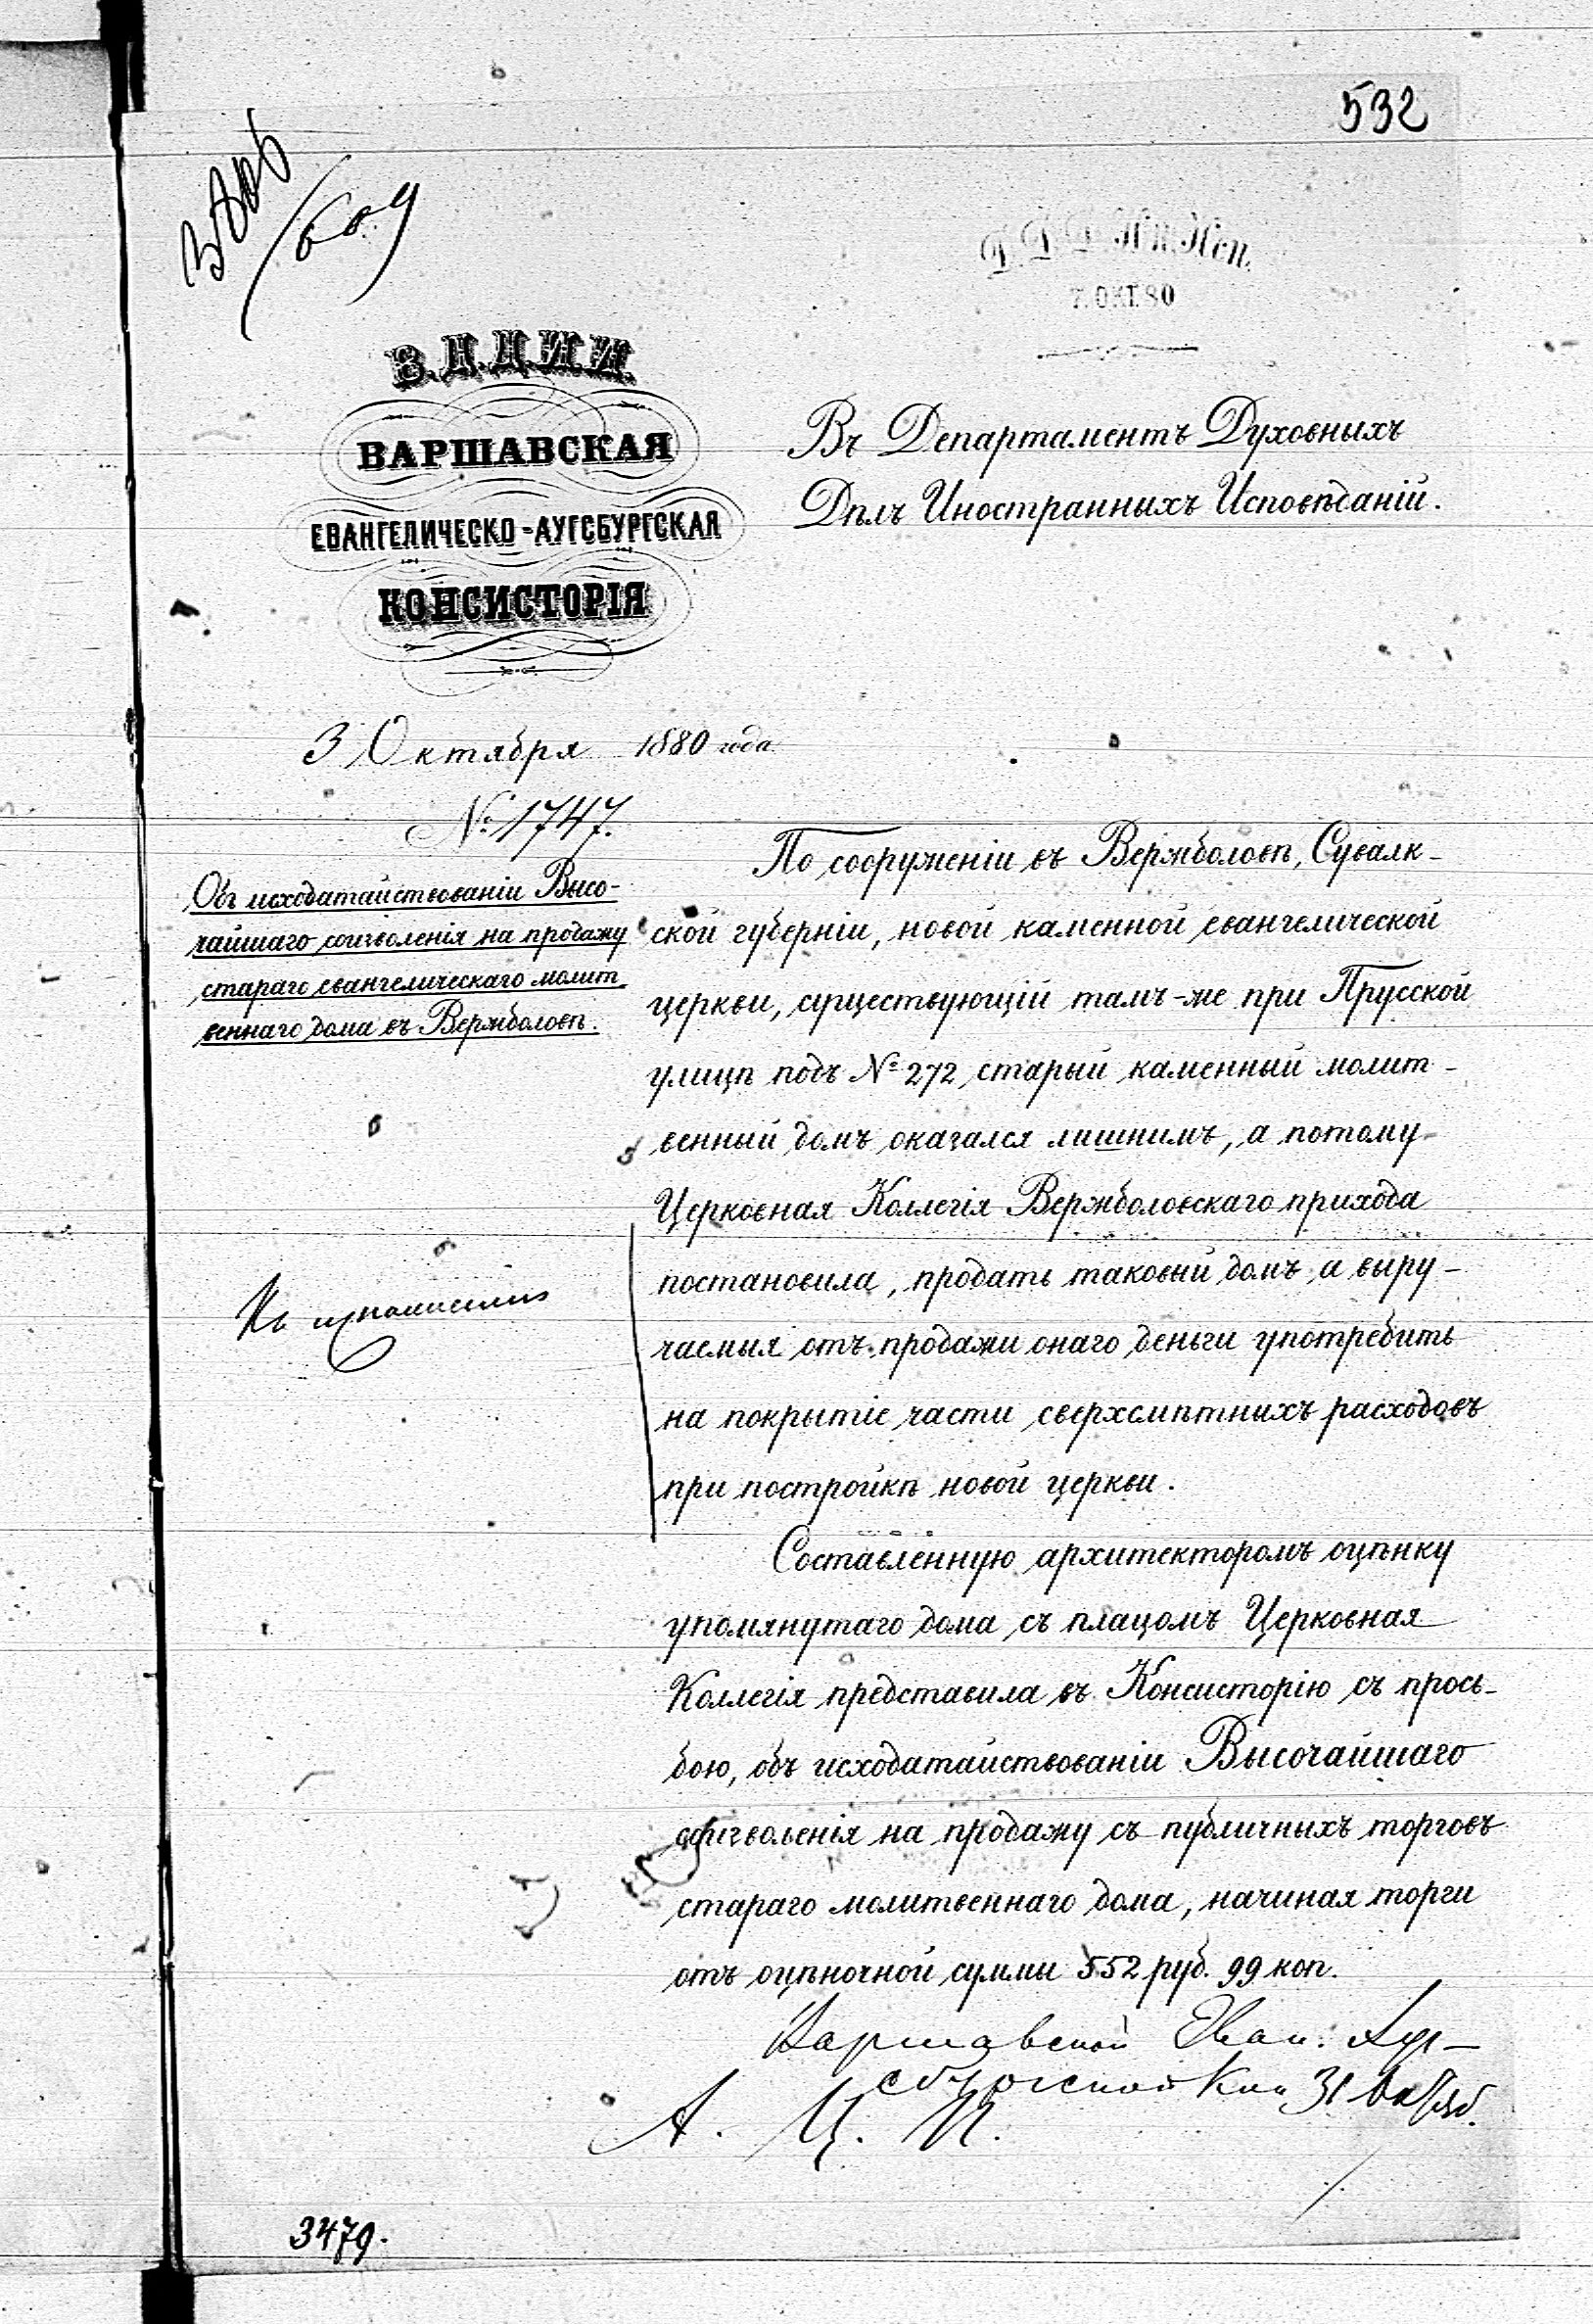 532
609
7. ОКТ. 80
В.Д.Ц.И.И.
ВАРШАВСКАЯ
ЕВАНГЕЛИЧЕСКО-АУГСБУРГСКАЯ
КОНСИСТОРІЯ
Въ Департаментъ Духовныхъ
Дѣлъ Иностранныхъ Исповѣданій.
3 Октября 1880 года
№ 1747.
Объ исходатайствованіи Высо-
чайшаго соизволенія на продажу
стараго евангелическаго молит
веннаго дома въ Вержболовѣ.
По сооруженіи въ Вержболовѣ, Сувалк-
ской губерніи, новой каменной евангелической
церкви, существующій тамъ-же при Прусской
улицѣ подъ № 272 старый каменный молит-
венный домъ оказался лишнимъ, а потому
Церковная Коллегія Вержболовскаго прихода
постановила, продать таковый домъ а выру-
чаемыя отъ продажи онаго деньги употребить
на покрытіе части сверхсмѣтныхъ расходовъ
при постройкѣ новой церкви.
Составленную архитекторомъ оцѣнку
упомянутаго дома съ плацомъ Церковная
Коллегія представила въ Консисторію съ прось-
бою, объ исходатайствованіи Высочайшаго
соизволенія на продажу съ публичныхъ торговъ
стараго молитвеннаго дома, начиная торги
отъ оцѣночной суммы 552 руб. 99 коп.
Къ исполненію
Варшавской Еван. Ауг-
сбургской Кон 31
А. Ц. П.
3479.